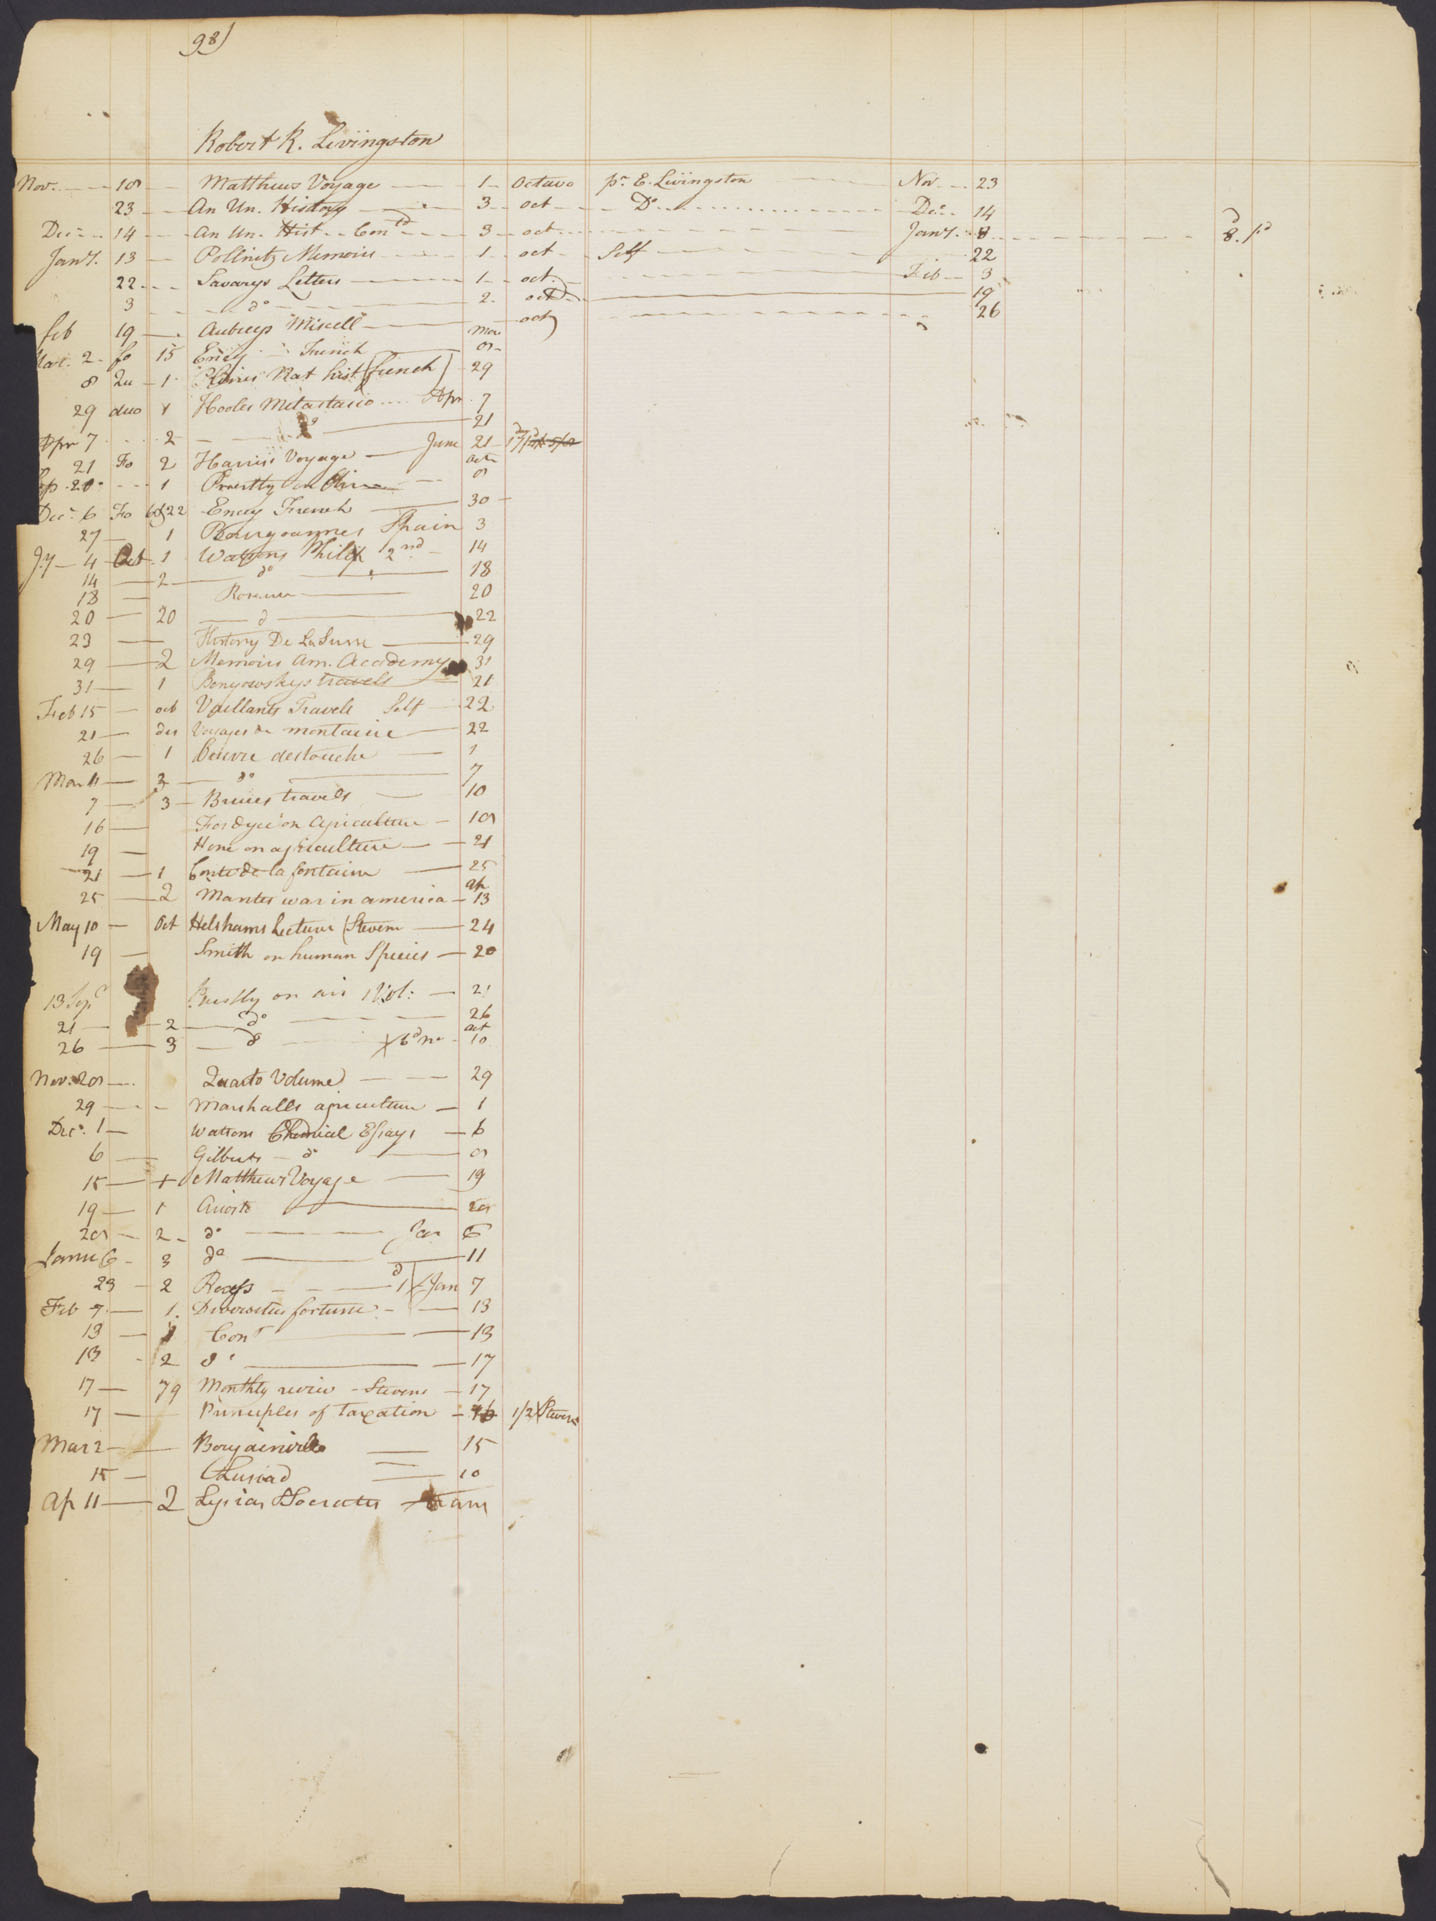 98)
Robert R. Livingston
Nov. 18 Matthews Voyage 1 Octavo pr. E. Livingston Nov 23
23 An Un. History 3 oct Do Dec. 14
Dec. 14 An Un. Hist. Contd 3 oct Jany. 8
Jany. 13 Pollnitz Memoirs 1 oct Self 22
22 Savarys Letters 1 oct Feb 3
3 do 2 oct 19
feb 19 Aubreys Miscell oct 26
2 fo 15 Ency French Mar 8
8 Qu 1 Plinies Nat hist (french) 29
29 duo 1 Hooles Metastasio Apr 7
Apr 7 2 do 21
21 Fo 2 Harriss Voyage June 21
20 1 Priestly on Octr 8
Decr 6 Fo 22 Ency French 30
27 1 Bourgoannes Spain 3
Jy 4 Oct 1 Watsons Philip 2nd 14
14 2 do 18
18 20
20 20 d 22
23 History De La 29
29 2 Memoirs Am. Academy 31
31 1 Benyowskys travels 21
Feb 15 oct Vaillants Travels Self 22
21 Voyages de montaine 22
26 1 Oeuvre destouche 1
Mar 2 do 7
7 3 Bruces travels 10
16 Fordyce on Agriculture 18
19 Home on agriculture 21
21 1 Conte de la fontaine 25
25 2 Mantes war in america ap 13
May 10 Oct Helshams Lectures (Stevens 24
19 Smith on human Species 20
13 Sepr Priestly on air 1 Vol: 21
21 2 do 26
26 3 do oct 10
Nov. 28 Quarto Volume 29
29 Marshalls agriculture 1
Dec. 1 Watsons Chemical Essays 6
6 Gilberts do 8
15 + Matthews Voyage 19
19 1 Ariosto 28
28 2 do Jan 6
Janu 6 3 do 11
23 2 Jan 7
Feb 7 1. fortune 13
13 Cont 13
13 2 do 17
17 79 Monthly review - Stevens 17
17 Principles of taxation 1/2 Stevens
Mar 2 Bougainville 15
15 Lusiad 10
Ap 11 2 Lysias & Isocrates